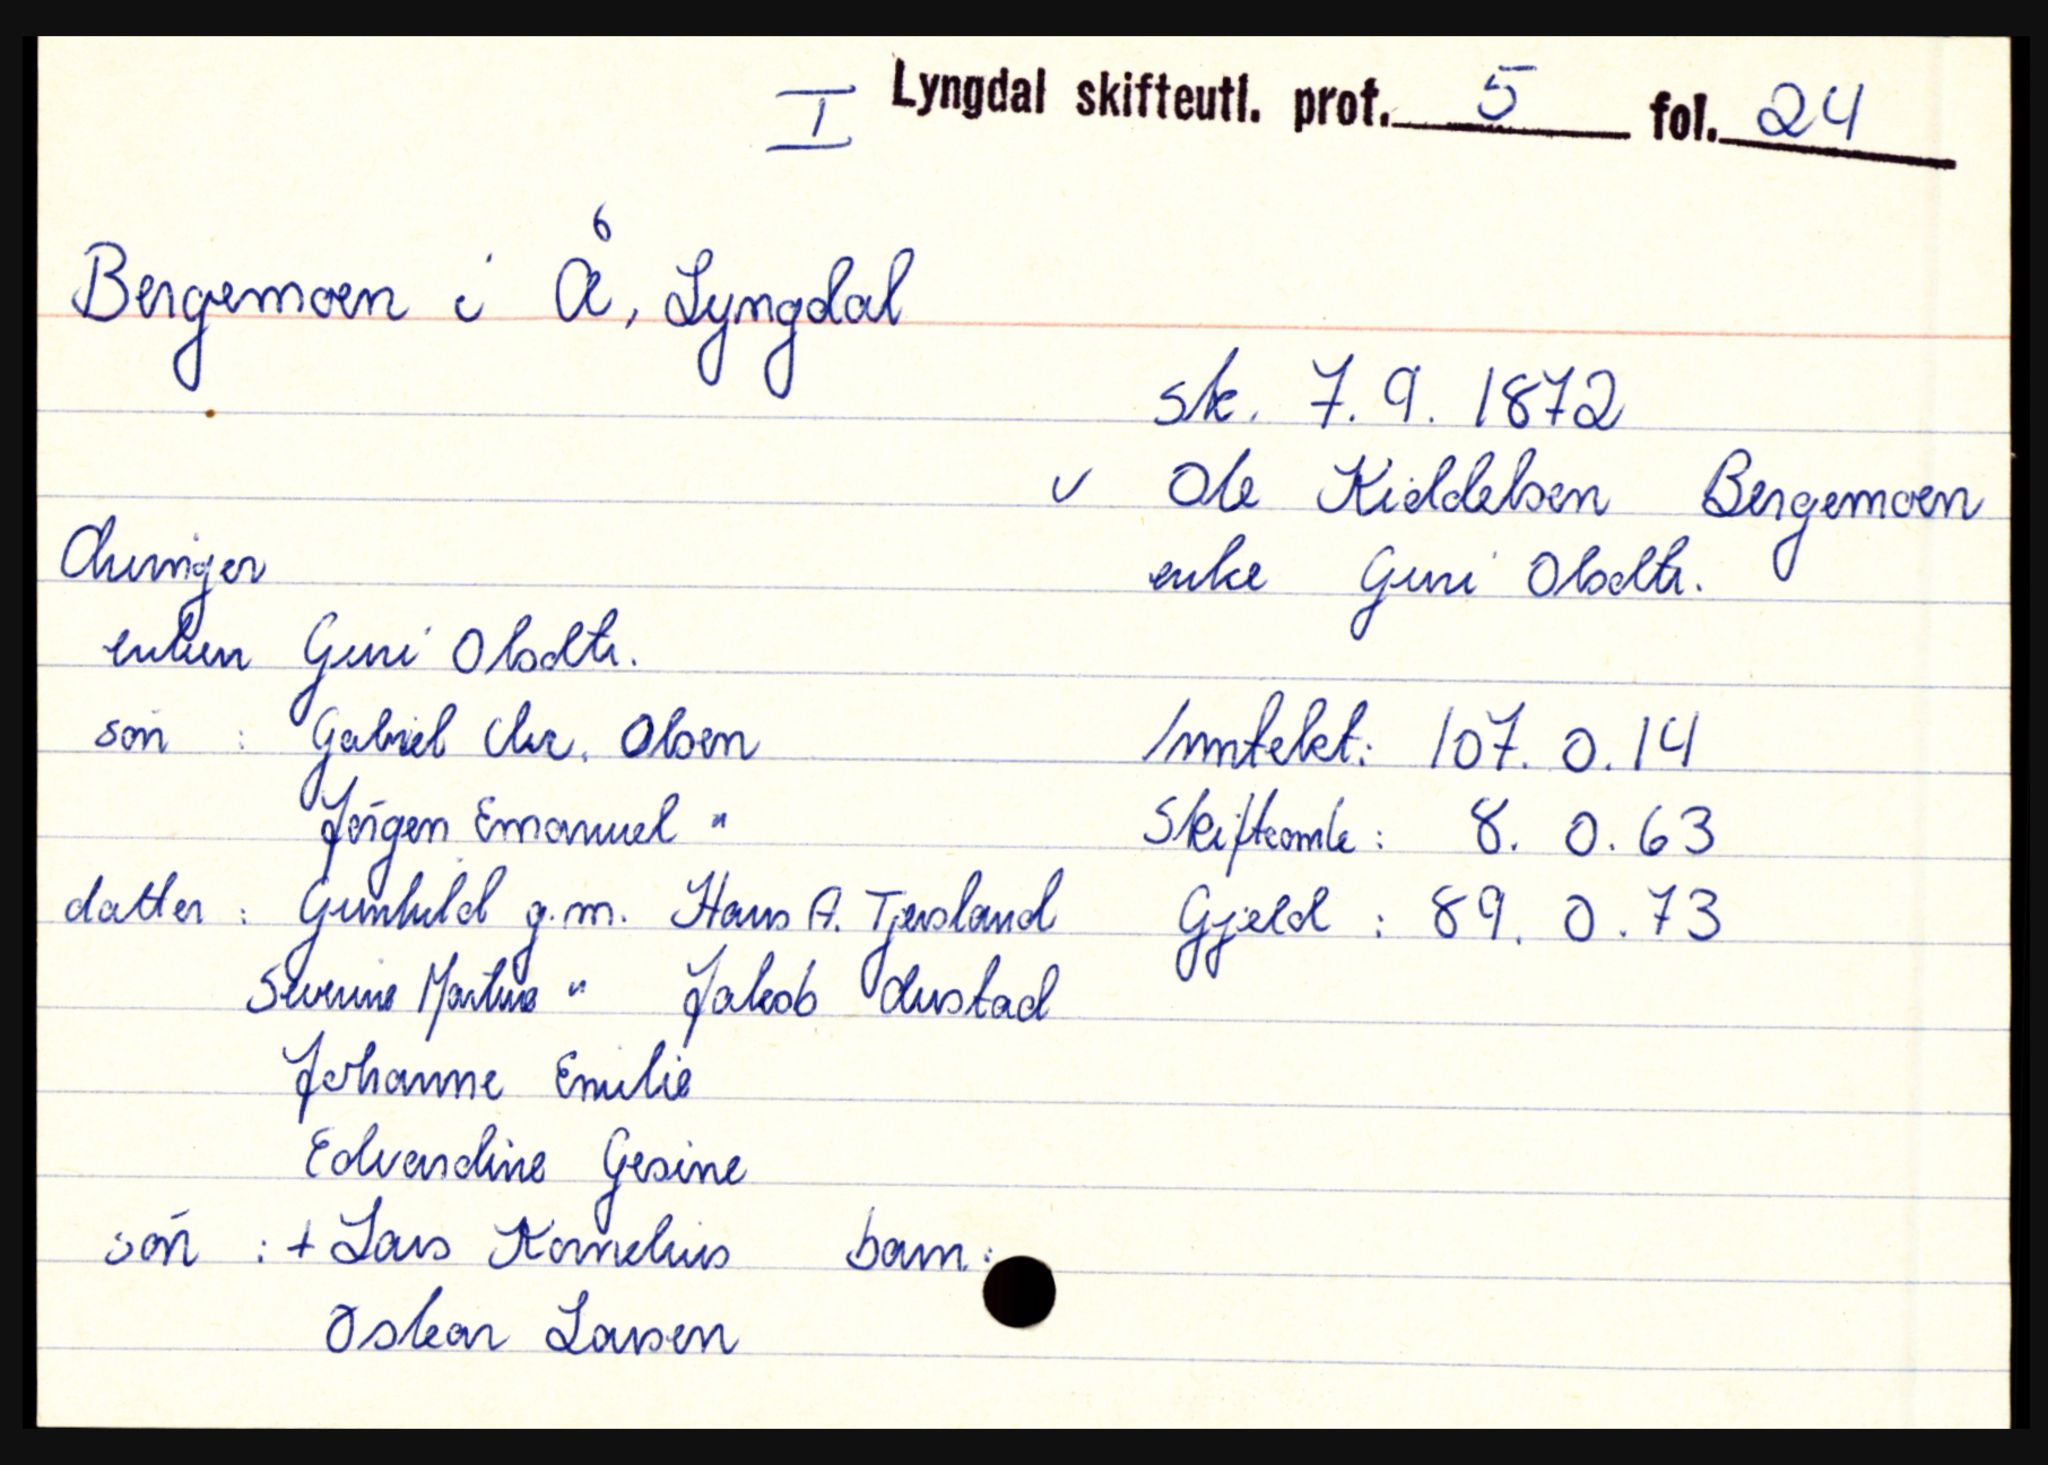 I Lyngdal skifteutl. prot. 5 fol. 24
Bergemoen i Å, Lyngdal
sk. 7. 9. 1872
v Ole Kiddelsen Bergemoen
enke Guri Olsdtr.
Arvinger
enken Guri Olsdtr.
sön : Gabriel Chr. Olsen
Jörgen Emanuel "
datter : Gunhild g.m. Hans A. Tjersland
Severine Martine " Jakob Austad
Johanne Emilie
Edvardine Gesine
sön : + Lars Kornelius barn:
Oskar Larsen
Inntekt: 107. 0. 14
Skifteomk : 8. 0. 63
Gjeld : 89. 0. 73